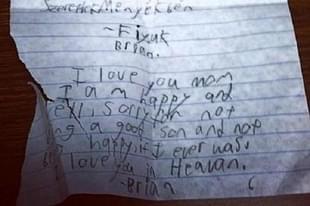 - Fizuk
Brian.
I love you mom
I am happy and
sorry not
a good son and not
happy, if I ever was.
I love you in Heavan.
- Brian